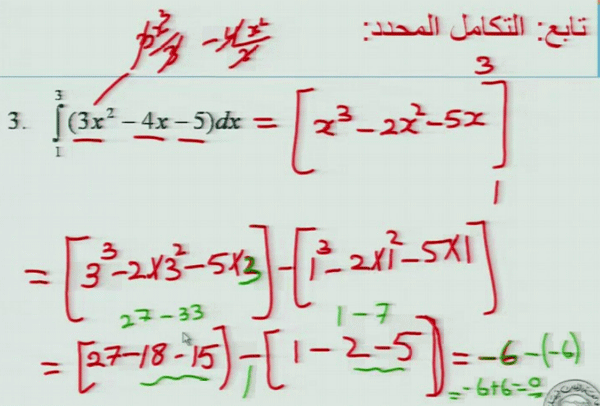 تابع: التكامل المحدد:
3. ∫₁³ (3x² − 4x − 5)dx = [x³ − 2x² − 5x]₁³
= [3³ − 2×3² − 5×3] − [1³ − 2×1² − 5×1]
27 − 33 1 − 7
= [27 − 18 − 15] − [1 − 2 − 5] = −6 − (−6)
= −6 + 6 = 0